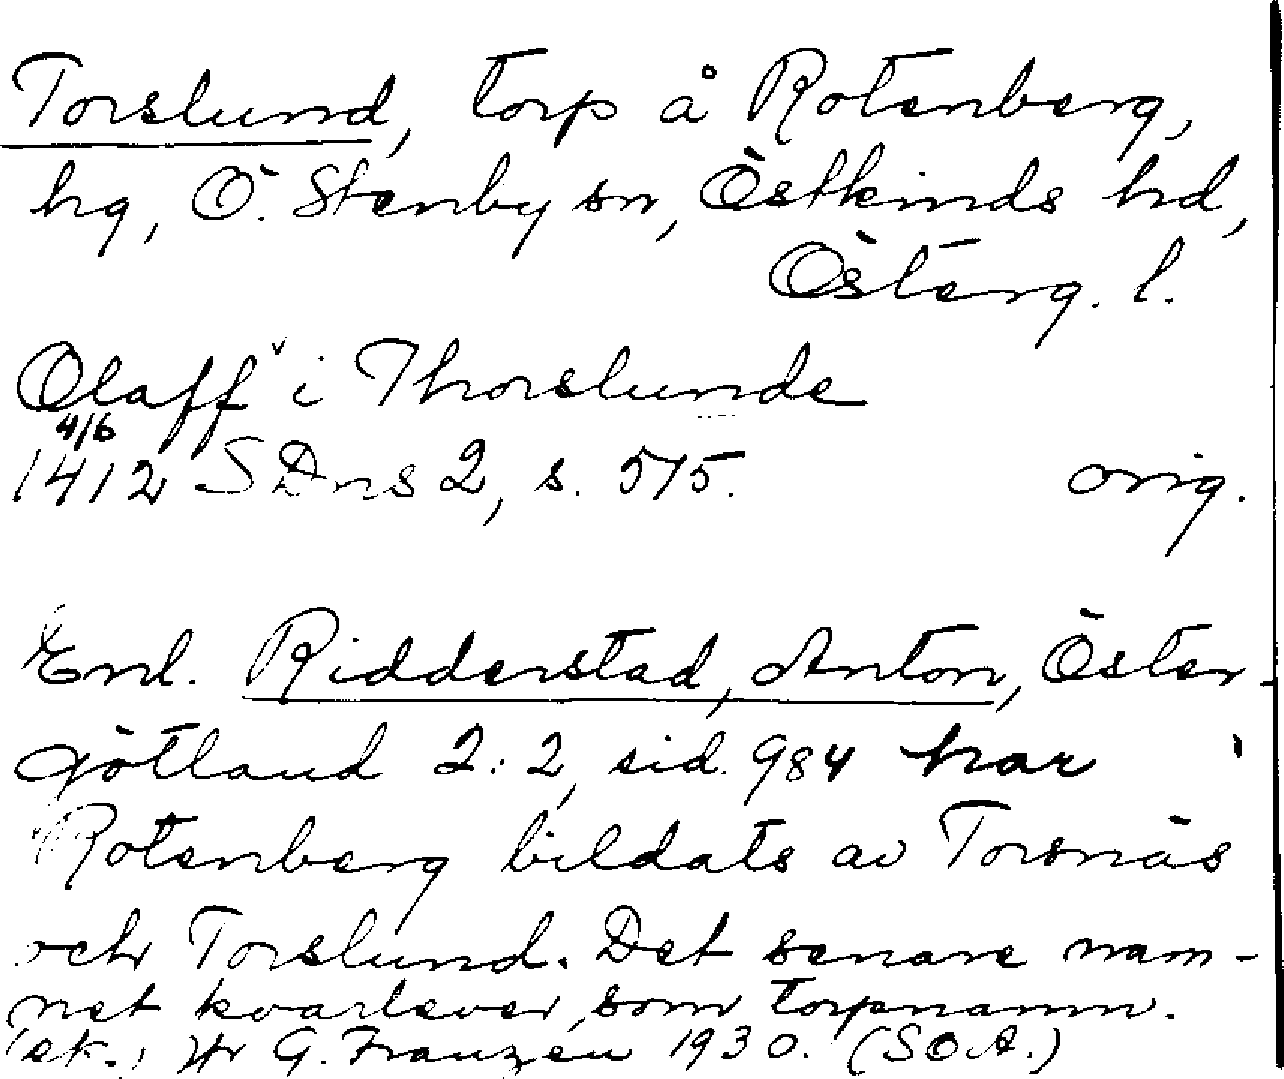 Torslund, torp å Rotenberg,
hg, Ö. Stenby sn, Östkinds hd,
Österg. l.
Olaff i Thorslunde
4/6
1412 SDns 2, s. 575. orig.
Enl. Ridderstad, Anton, Öster-
götland 2:2, sid. 984 har
Rotenberg bildats av Torsnäs
och Torslund. Det senare nam-
net kvarlever som torpnamn.
(ek., G. Franzén 1930. (SOA.)